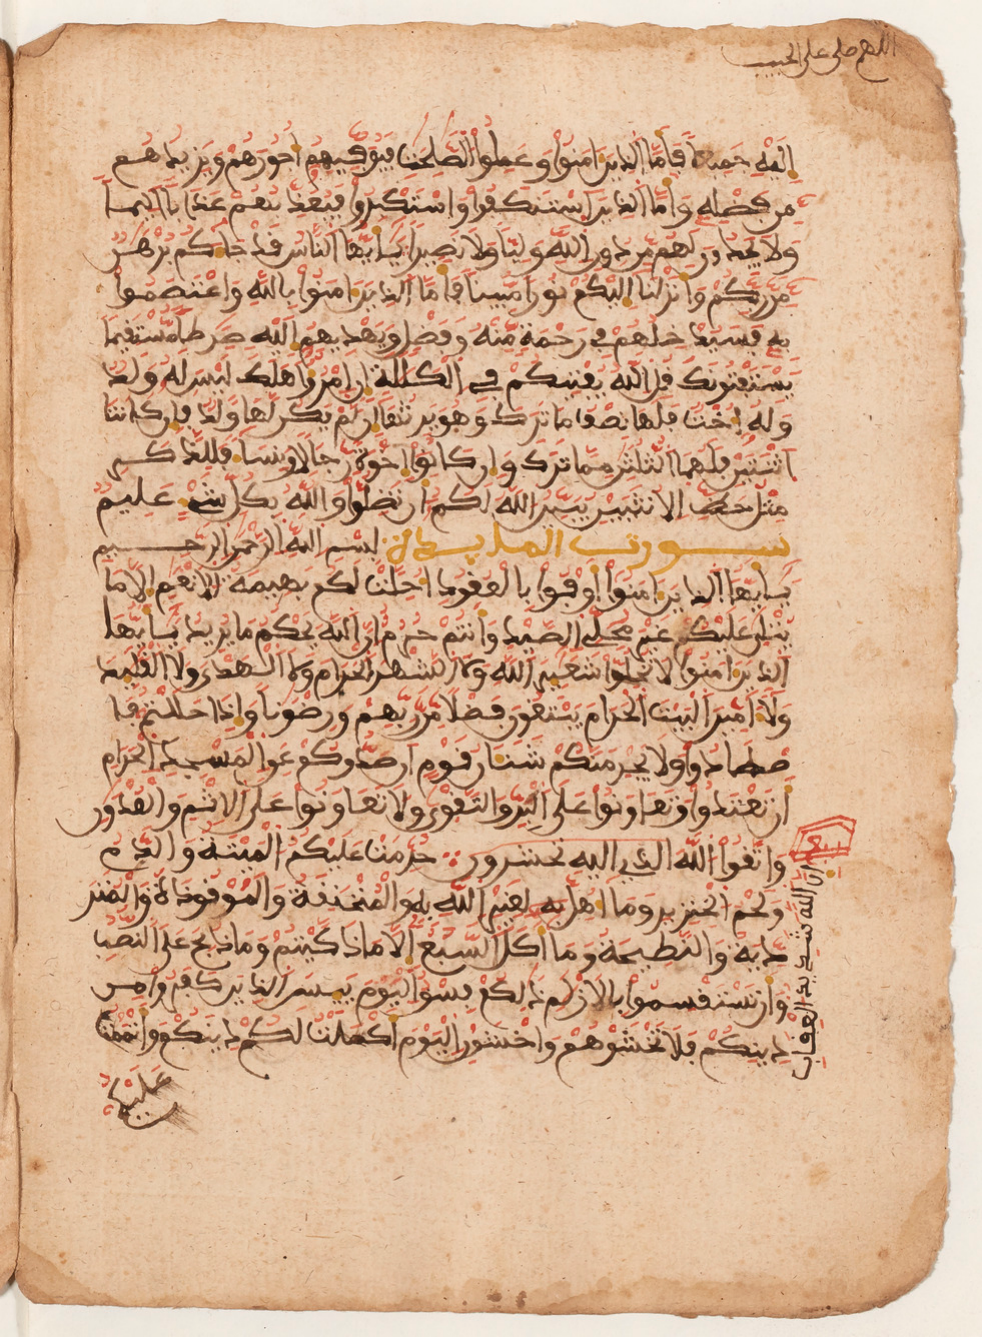 اللهم صلى على الحبيب
إليه جميعا فأما الذين امنوا وعملوا الصلحت فيوفيهم أجورهم ويزيدهم
من فضله وأما الذين استنكفوا واستكبروا فيعذبهم عذابا اليما
ولا يجدون لهم من دون الله وليا ولا نصيرا يايها الناس قد جاكم برهن
من ربكم وانزلنا إليكم نورا مبينا فاما الذين امنوا بالله واعتصموا
به فسيدخلهم في رحمة منه وفضل ويهديهم إليه صرطا مستقيما
يستفتونك قل الله يفتيكم في الكللة إن امرؤا هلك ليس له ولد
وله أخت فلها نصف ما ترك وهو يرثها إن لم يكن لها ولد فإن كانتا
اثنتين فلهما الثلثن مما ترك وإن كانوا إخوة رجالا ونسا فللذكر
مثل حظ الانثيين يبين الله لكم أن تضلوا والله بكل شي عليم
سورت المايدة بسم الله الرحمن الرحيم
يايها الذين امنوا أوفوا بالعقود احلت لكم بهيمة الانعم إلا ما
يتلى عليكم غير محلي الصيد وانتم حرم إن الله يحكم ما يريد يايها
الذين امنوا لا تحلوا شعير الله ولا الشهر الحرام ولا الهدي ولا القليد
ولا امين البيت الحرام يبتغون فضلا من ربهم ورضونا وإذا حللتم فا
صطادوا ولا يجرمنكم شنان قوم ان صدوكم عن المسجد الحرام
أن تعتدوا وتعاونوا على البر والتقوى ولا تعاونوا على الاثم والعدون
واتقوا الله الذي إليه تحشرون حرمت عليكم الميتة والدم
إن الله شديد العقاب
ولحم الخنزير وما اهل به لغير الله به والمنخنقة والموقوذة والمتر
دية والنطيحة وما اكل السبع إلا ما ذكيتم وما ذبح على النصب
وان تستقسموا بالازلم ذلكم فسق اليوم ييس الذين كفروا من
دينكم فلا تخشوهم واخشون اليوم اكملت لكم دينكم واتممت
عليكم